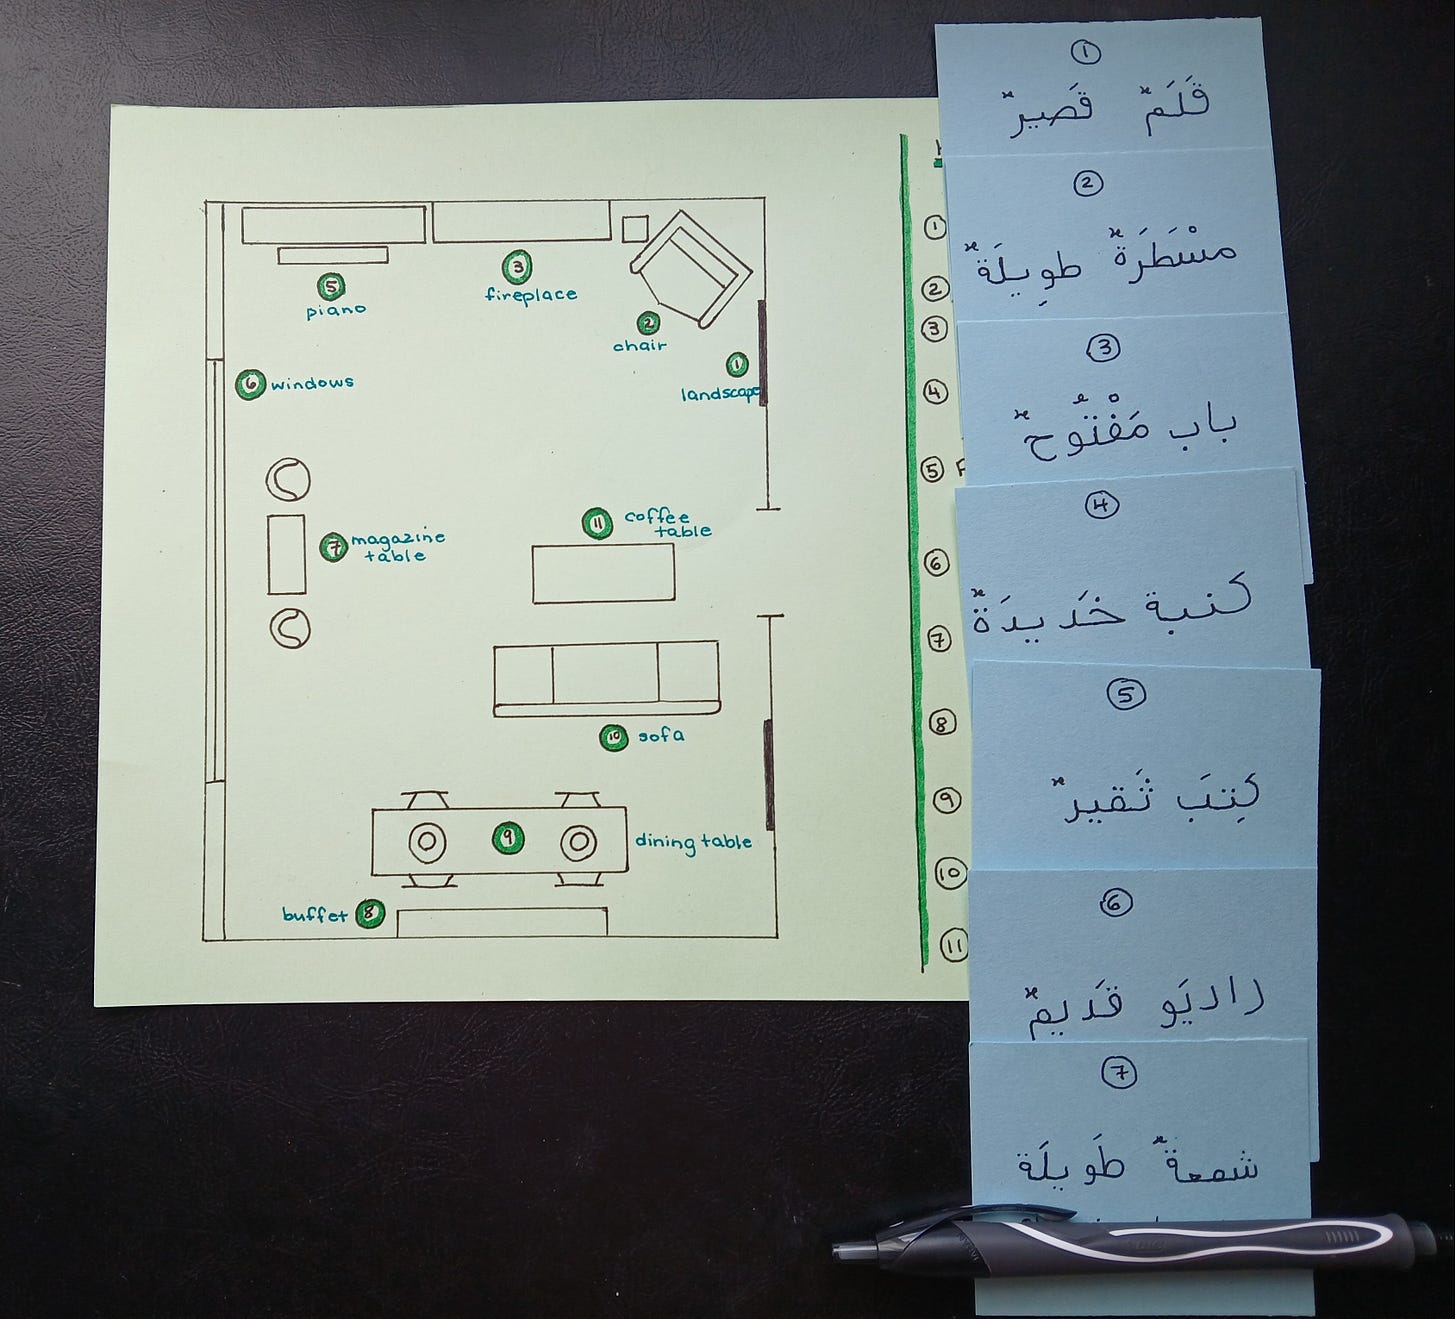 ⑤
piano
③
fireplace
②
chair
①
landscape
⑥ windows
⑦ magazine
table
⑪ coffee
table
⑩ sofa
⑨ dining table
buffet ⑧
①
②
③
④
⑤ F
⑥
⑦
⑧
⑨
⑩
⑪
①
قَلَمٌ قَصيرٌ
②
مسْطَرَةٌ طوِيلَةٌ
③
باب مَفْتُوحٌ
④
كنبة خَديدَةٌ
⑤
كِتِبَ ثَقيرٌ
⑥
راديَو قَديمٌ
⑦
شمعةٌ طَويلَة